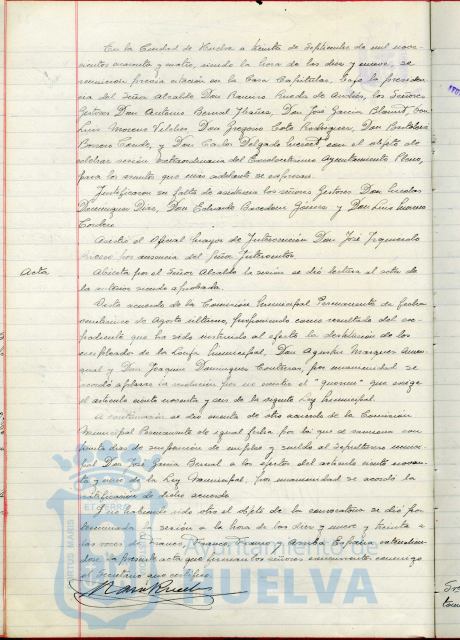 En la Ciudad de Huelva a treinta de Septiembre de mil nove-
cientos cuarenta y cuatro, siendo la hora de las diez y nueve, se
reunieron previa citación en la Casa Capitular, bajo la presiden-
cia del Señor Alcalde Don Ramiro de Andrés, los Señores
Gestores Don Antonio Bernal Ybáñez, Don José Garcia Don
Luis Moreno Don Gregorio Coto Rodriguez, Don Bartolomé
Conde, y Don Carlos Delgado con el objeto de
celebrar sesión extraordinaria del Excelentísimo Ayuntamiento Pleno,
para los asuntos que más adelante se expresan.
Justificaron su falta de asistencia los señores Gestores Don Nicolas
Dominguez Diaz, Don Eduardo Gomez y Don Luis
Cordero
Asistió el Oficial Mayor de Intervención Don José Izquierdo
por ausencia del Señor Interventor.
Acta
Abierta por el Señor Alcalde la sesión se dió lectura al acta de
la anterior siendo aprobada.
Visto acuerdo de la Comisión Municipal Permanente de fecha
veinticinco de Agosto último, proponiendo como resultado del ex-
pediente que ha sido instruido al efecto la destitución de los
empleados de la Municipal, Don Agustin Marquez
y Don Joaquin Dominguez Contreras, por unanimidad se
acordó aplazar la resolución por no existir el "quorum" que exige
el articulo ciento noventa y seis de la vigente Ley Municipal.
A continuación se dió cuenta de otro acuerdo de la Comisión
Municipal Permanente de igual fecha por la que se sanciona con
treinta dias de suspensión de empleo y sueldo al Sepulturero
Don José Garcia Bernal a los efectos del articulo ciento noven-
ta y de la Ley Municipal, por unanimidad se acordó la
ratificación de dicho acuerdo.
Y no habiendo sido otro el objeto de la convocatoria se dió por
terminada la sesión a la hora de las diez y nueve y treinta a
las voces de Franco, Franco, Franco y Arriba España extendien-
dose la presente acta que firman los señores concurrentes conmigo
el Secretario que certifico.
Ayuntamiento de
HUELVA